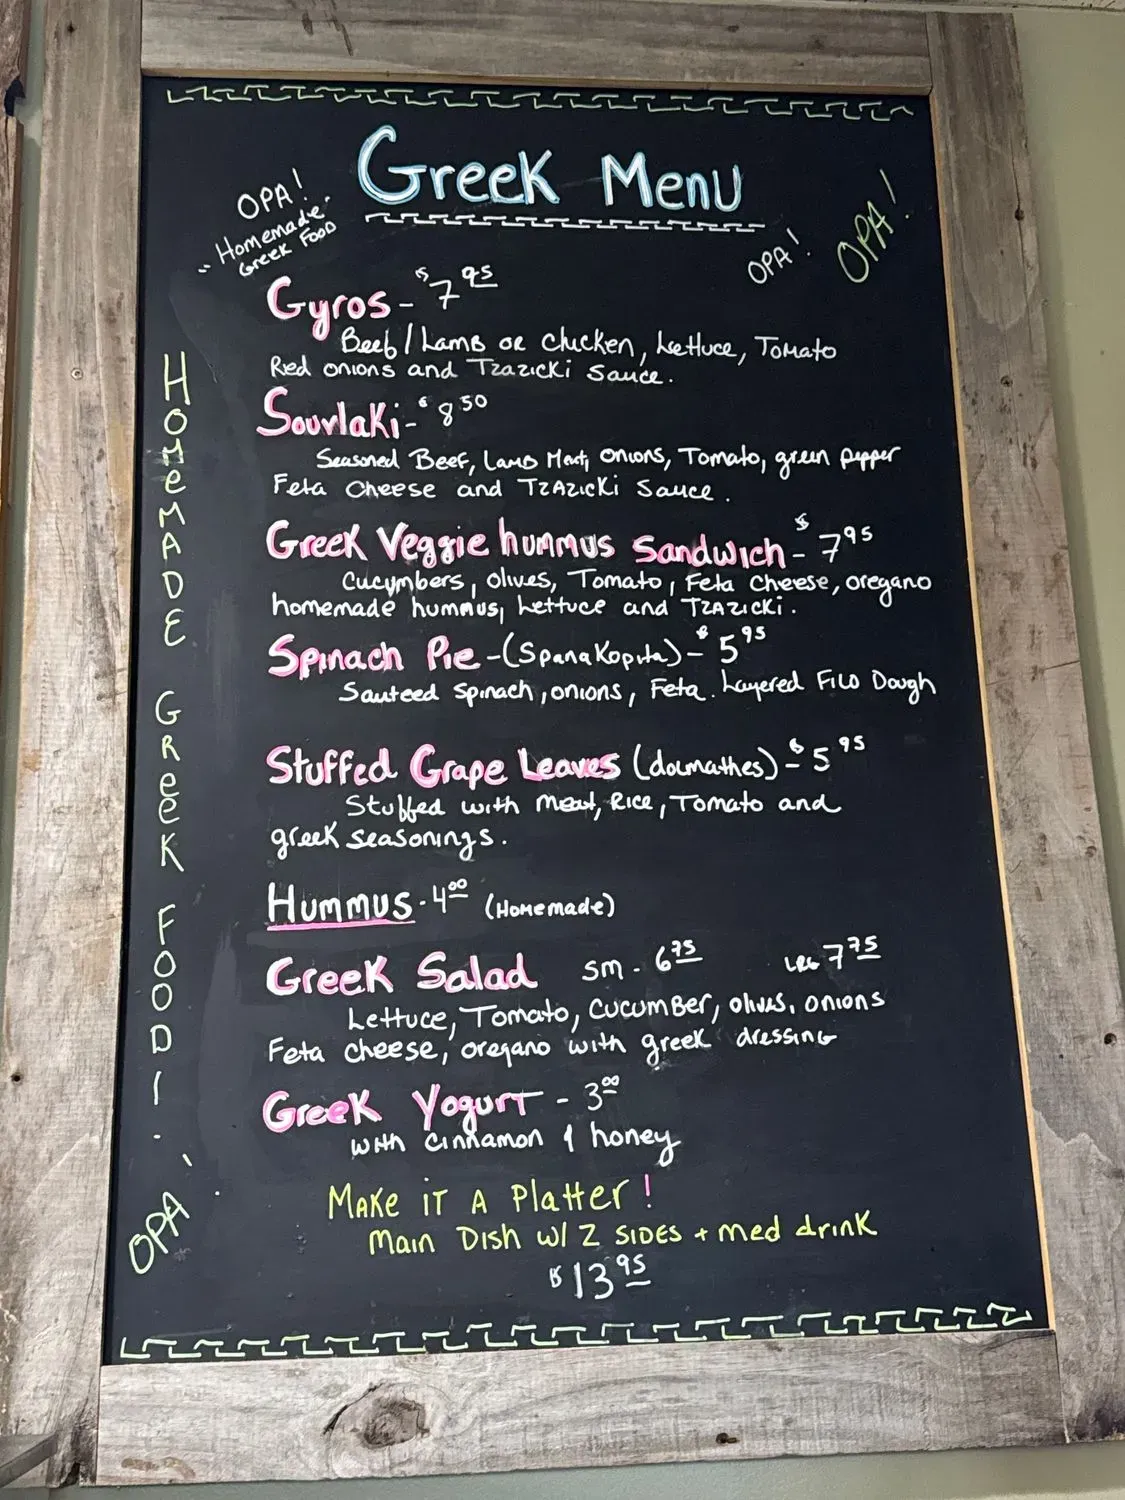 Greek Menu
OPA!
"Homemade"
Greek Food
OPA!
OPA!
Gyros - $7.95
Beef/Lamb or Chicken, Lettuce, Tomato
Red onions and Tzazicki Sauce.
Souvlaki - $8.50
Seasoned Beef, Lamb Meat, onions, Tomato, green pepper
Feta Cheese and Tzazicki Sauce.
Greek Veggie hummus Sandwich - $7.95
Cucumbers, olives, Tomato, Feta Cheese, oregano
homemade hummus, Lettuce and Tzazicki.
Spinach Pie - (Spanakopita) - $5.95
Sauteed spinach, onions, Feta. Layered Filo Dough
Stuffed Grape Leaves (dolmathes) - $5.95
Stuffed with meat, Rice, Tomato and
greek seasonings.
Hummus - 4.00 (Homemade)
Greek Salad sm - 6.75 LRG 7.75
Lettuce, Tomato, Cucumber, olives, onions
Feta cheese, oregano with greek dressing
Greek Yogurt - 3.00
with cinnamon & honey
Make it A Platter!
Main Dish w/ 2 sides + med drink
$13.95
Homemade Greek Food!
OPA!